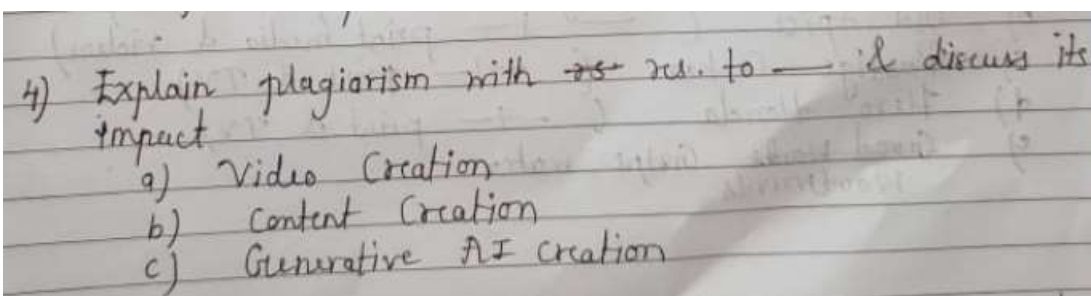 4) Explain plagiarism with rs res. to — & discuss its
impact
a) Video Creation
b) Content Creation
c) Generative AI Creation